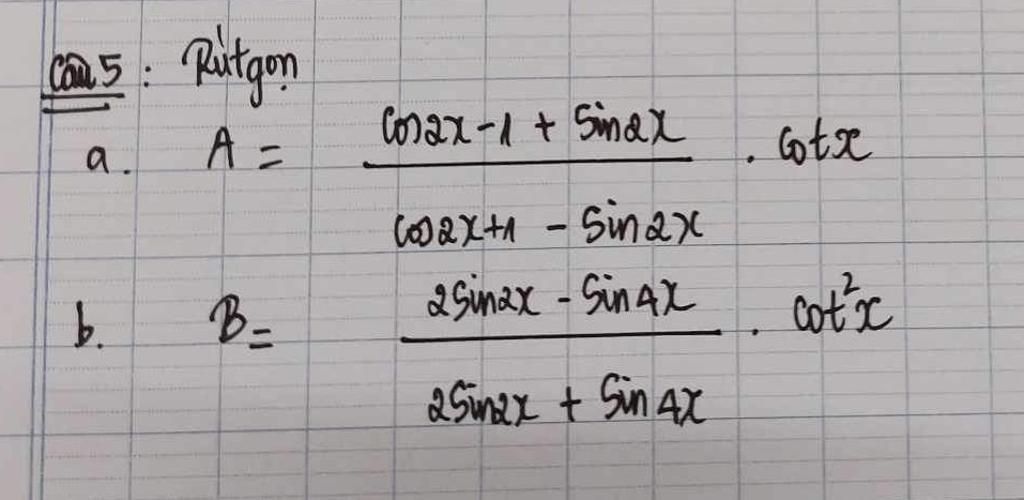 Câu 5 : Rút gọn
a. A = (cos2x - 1 + sin2x) / (cos2x + 1 - sin2x) . cotx
b. B = (2sin2x - sin4x) / (2sin2x + sin4x) . cot²x